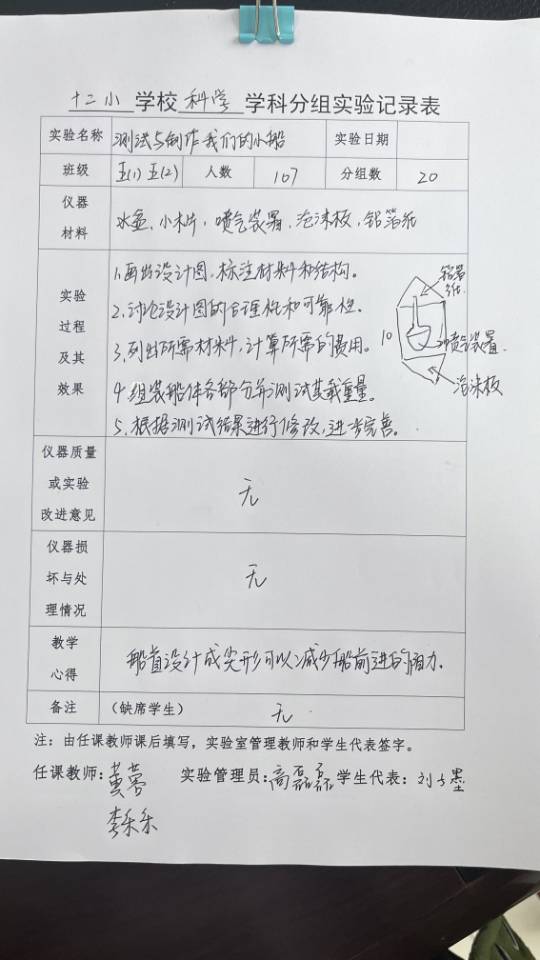 十二小 学校 科学 学科分组实验记录表
实验名称 测试与制作我们的小船 实验日期
班级 五(1) 五(2) 人数 107 分组数 20
仪器材料 水盆、小木片，喷气装置、泡沫板，铝箔纸
实验过程及其效果
1.画出设计图，标注材料和结构。
2.讨论设计图的合理性和可靠性。
3.列出所需材料，计算所需的费用。
4.组装船体各部分并测试其载重量。
5.根据测试结果进行修改，进步完善。
铝箔纸
10
喷气装置
泡沫板
仪器质量或实验改进意见 无
仪器损坏与处理情况 无
教学心得 船首设计成尖形可以减少船前进的阻力.
备注 (缺席学生) 无
注：由任课教师课后填写，实验室管理教师和学生代表签字。
任课教师：黄蓉 实验管理员：高磊磊 学生代表：刘墨
李乐乐